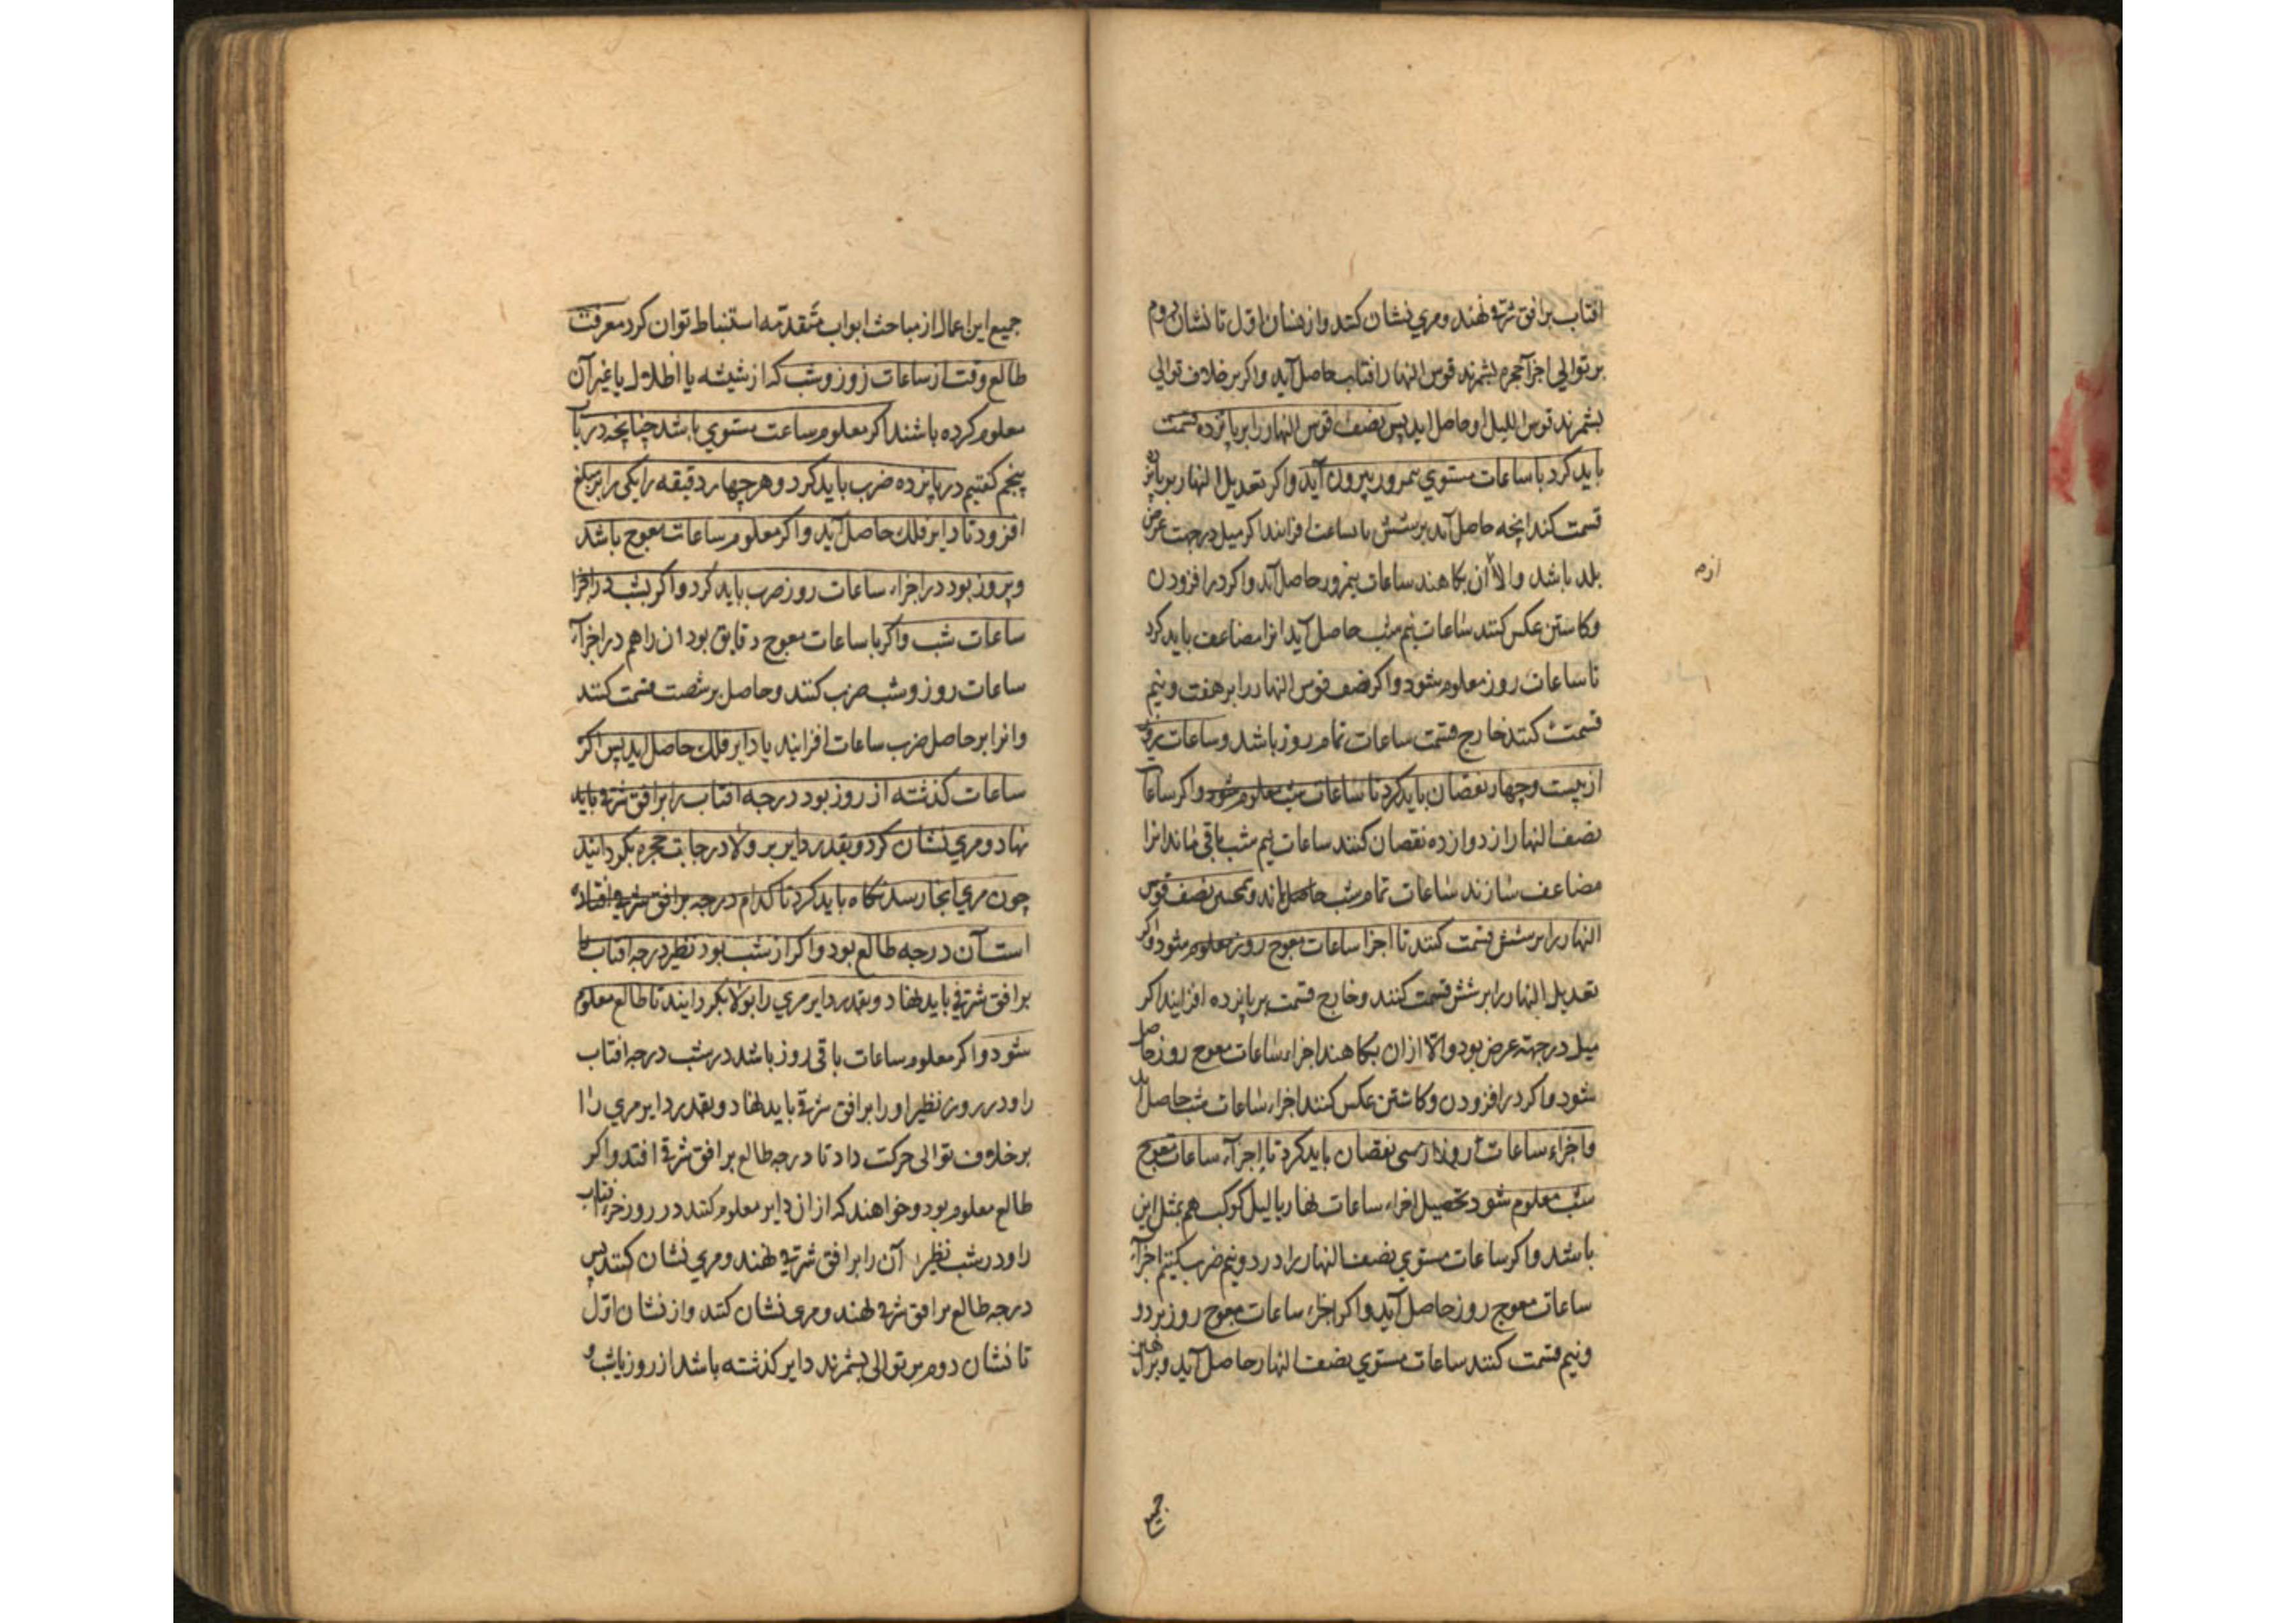 افتاب بر افق شرقی نهند و مری نشان کنند و از نشان اول تا نشان دوم
بر توالی اجزآ حجره بشمرند قوس النهار افتاب حاصل آید واکر بر خلاف توالی
بشمرند قوس اللیل او حاصل اید پس نصف قوس النهار را بر پانزده قسمت
باید کرد تا ساعات مستوی نیمروز بیرون آید واکر تعدیل النهار بر پانزده
قسمت کند انچه حاصل آید بر شش ساعت افزایند اکر میل در جهت عرض
بلد باشد والا از ان بکاهند ساعات نیمروز حاصل آید واکر در افزودن
وکاستن عکس کنند ساعات نیم شب حاصل آید انرا مضاعف باید کرد
تا ساعات روز معلوم شود واکر نصف قوس النهار را بر هفت و نیم
قسمت کنند خارج قسمت ساعات تمام روز باشد و ساعات روز
از بیست و چهار نقصان باید کرد تا ساعات شب معلوم شود واکر ساعات
نصف النهار از دوازده نقصان کنند ساعات نیم شب باقی ماند انرا
مضاعف سازند ساعات تمام شب حاصل اید و همچنین نصف قوس
النهار را بر شش قسمت کنند تا اجزا ساعات معوج روز معلوم شود واکر
تعدیل النهار را بر شش قسمت کنند و خارج قسمت بر پانزده افزایند اکر
میل در جهة عرض بود والا از ان بکاهند اجزاء ساعات معوج روز حاصل
شود واکر در افزودن وکاستن عکس کنند اجزاء ساعات شب حاصل اید
واجزاء ساعات روز از سی نقصان باید کرد تا اجزآء ساعات معوج
شب معلوم شود تحصیل اجزاء ساعات نهار یا لیل کوکب هم بمثل این
باشد واکر ساعات مستوی نصف النهار را در دو نیم ضرب کنیم اجزآء
ساعات معوج روز حاصل آید واکر اجزاء ساعات معوج روز بر دو
ونیم قسمت کنند ساعات مستوی نصف النهار حاصل آید و براین
جمیع
جمیع این اعمال از مباحث ابواب متقدّمه استنباط توان کرد معرفت
طالع وقت از ساعات روز وشب که از شیشه یا اظلال یا غیر آن
معلوم کرده باشند اکر معلوم ساعت مستوی باشد چنانچه در باب
پنجم کفتیم در پانزده ضرب باید کرد و هر چهار دقیقه را یکی را بر مبلغ
افزود تا دایر فلک حاصل آید واکر معلوم ساعات معوج باشد
وبروز بود در اجزاء ساعات روز ضرب باید کرد واکر بشب در اجزا
ساعات شب واکر با ساعات معوج دقایق بود ان را هم در اجزآء
ساعات روز وشب ضرب کنند وحاصل بر شصت قسمت کنند
وانرا بر حاصل ضرب ساعات افزایند تا دایر فلک حاصل اید پس اکر
ساعات کذشته از روز بود درجه افتاب را بر افق شرقی باید
نهاد و مری نشان کرد و بقدر دایر بر ولا درجات حجره بکردانند
چون مری انجا رسد نکاه باید کرد تا کدام درجه بر افق شرقی افتاده
است آن درجه طالع بود واکر از شب بود نظیر درجه افتاب را
بر افق شرقی باید نهاد و بقدر دایر مری را بولا بکردانند تا طالع معلوم
شود واکر معلوم ساعات باقی روز باشد در شب درجه افتاب
را ودر روز نظیر او را بر افق شرقی باید نهاد و بقدر دایر مری را
بر خلاف توالی حرکت داد تا درجه طالع بر افق شرقی افتد واکر
طالع معلوم بود وخواهند که از ان دایر معلوم کنند در روز جزء افتاب
را ودر شب نظیر آن را بر افق شرقی نهند ومری نشان کنند پس
درجه طالع بر افق شرقی نهند ومری نشان کنند واز نشان اوّل
تا نشان دوم بر توالی بشمرند دایر کذشته باشد از روز یا شب و